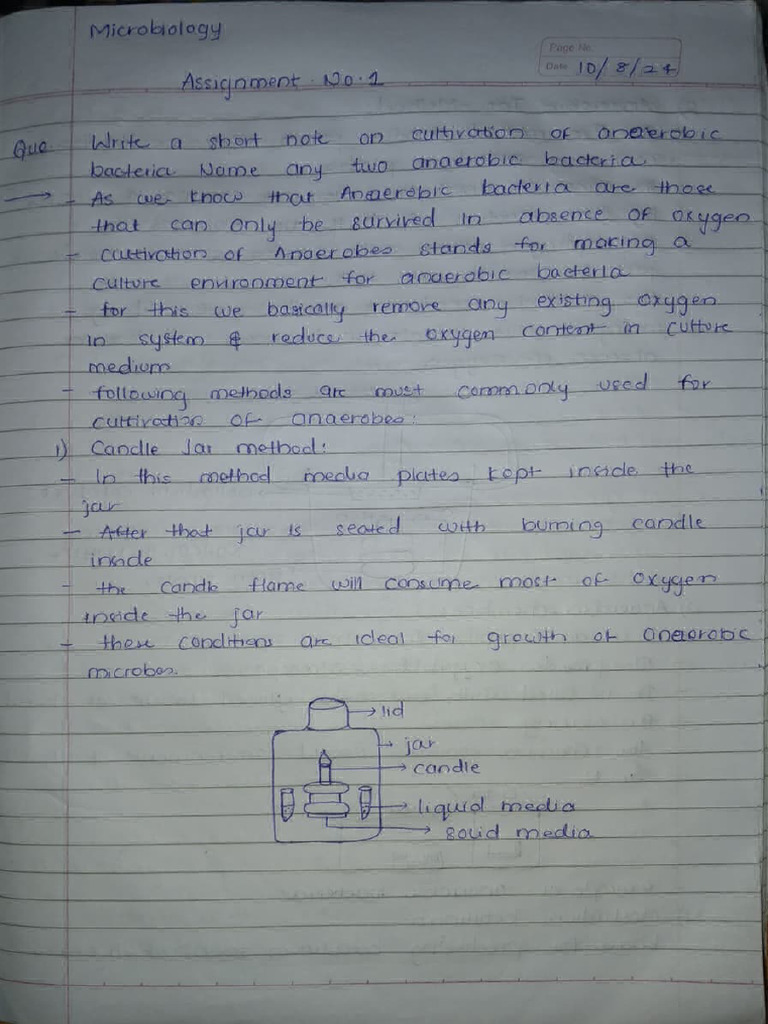 Microbiology
Page No.
Date 10/8/24
Assignment No.1
Que Write a short note on cultivation of anaerobic
bacteria Name any two anaerobic bacteria
→ - As we know that Anaerobic bacteria are those
that can only be survived in absence of oxygen
- cultivation of Anaerobes stands for making a
culture environment for anaerobic bacteria
- for this we basically remove any existing oxygen
in system & reduce the oxygen content in culture
medium
- following methods are must commonly used for
cultivation of anaerobes:
1) Candle Jar method:
- In this method media plates kept inside the
jar
- After that jar is sealed with burning candle
inside
- the candle flame will consume most of oxygen
inside the jar
- these conditions are ideal for growth of anaerobic
microbes.
lid
jar
candle
liquid media
solid media